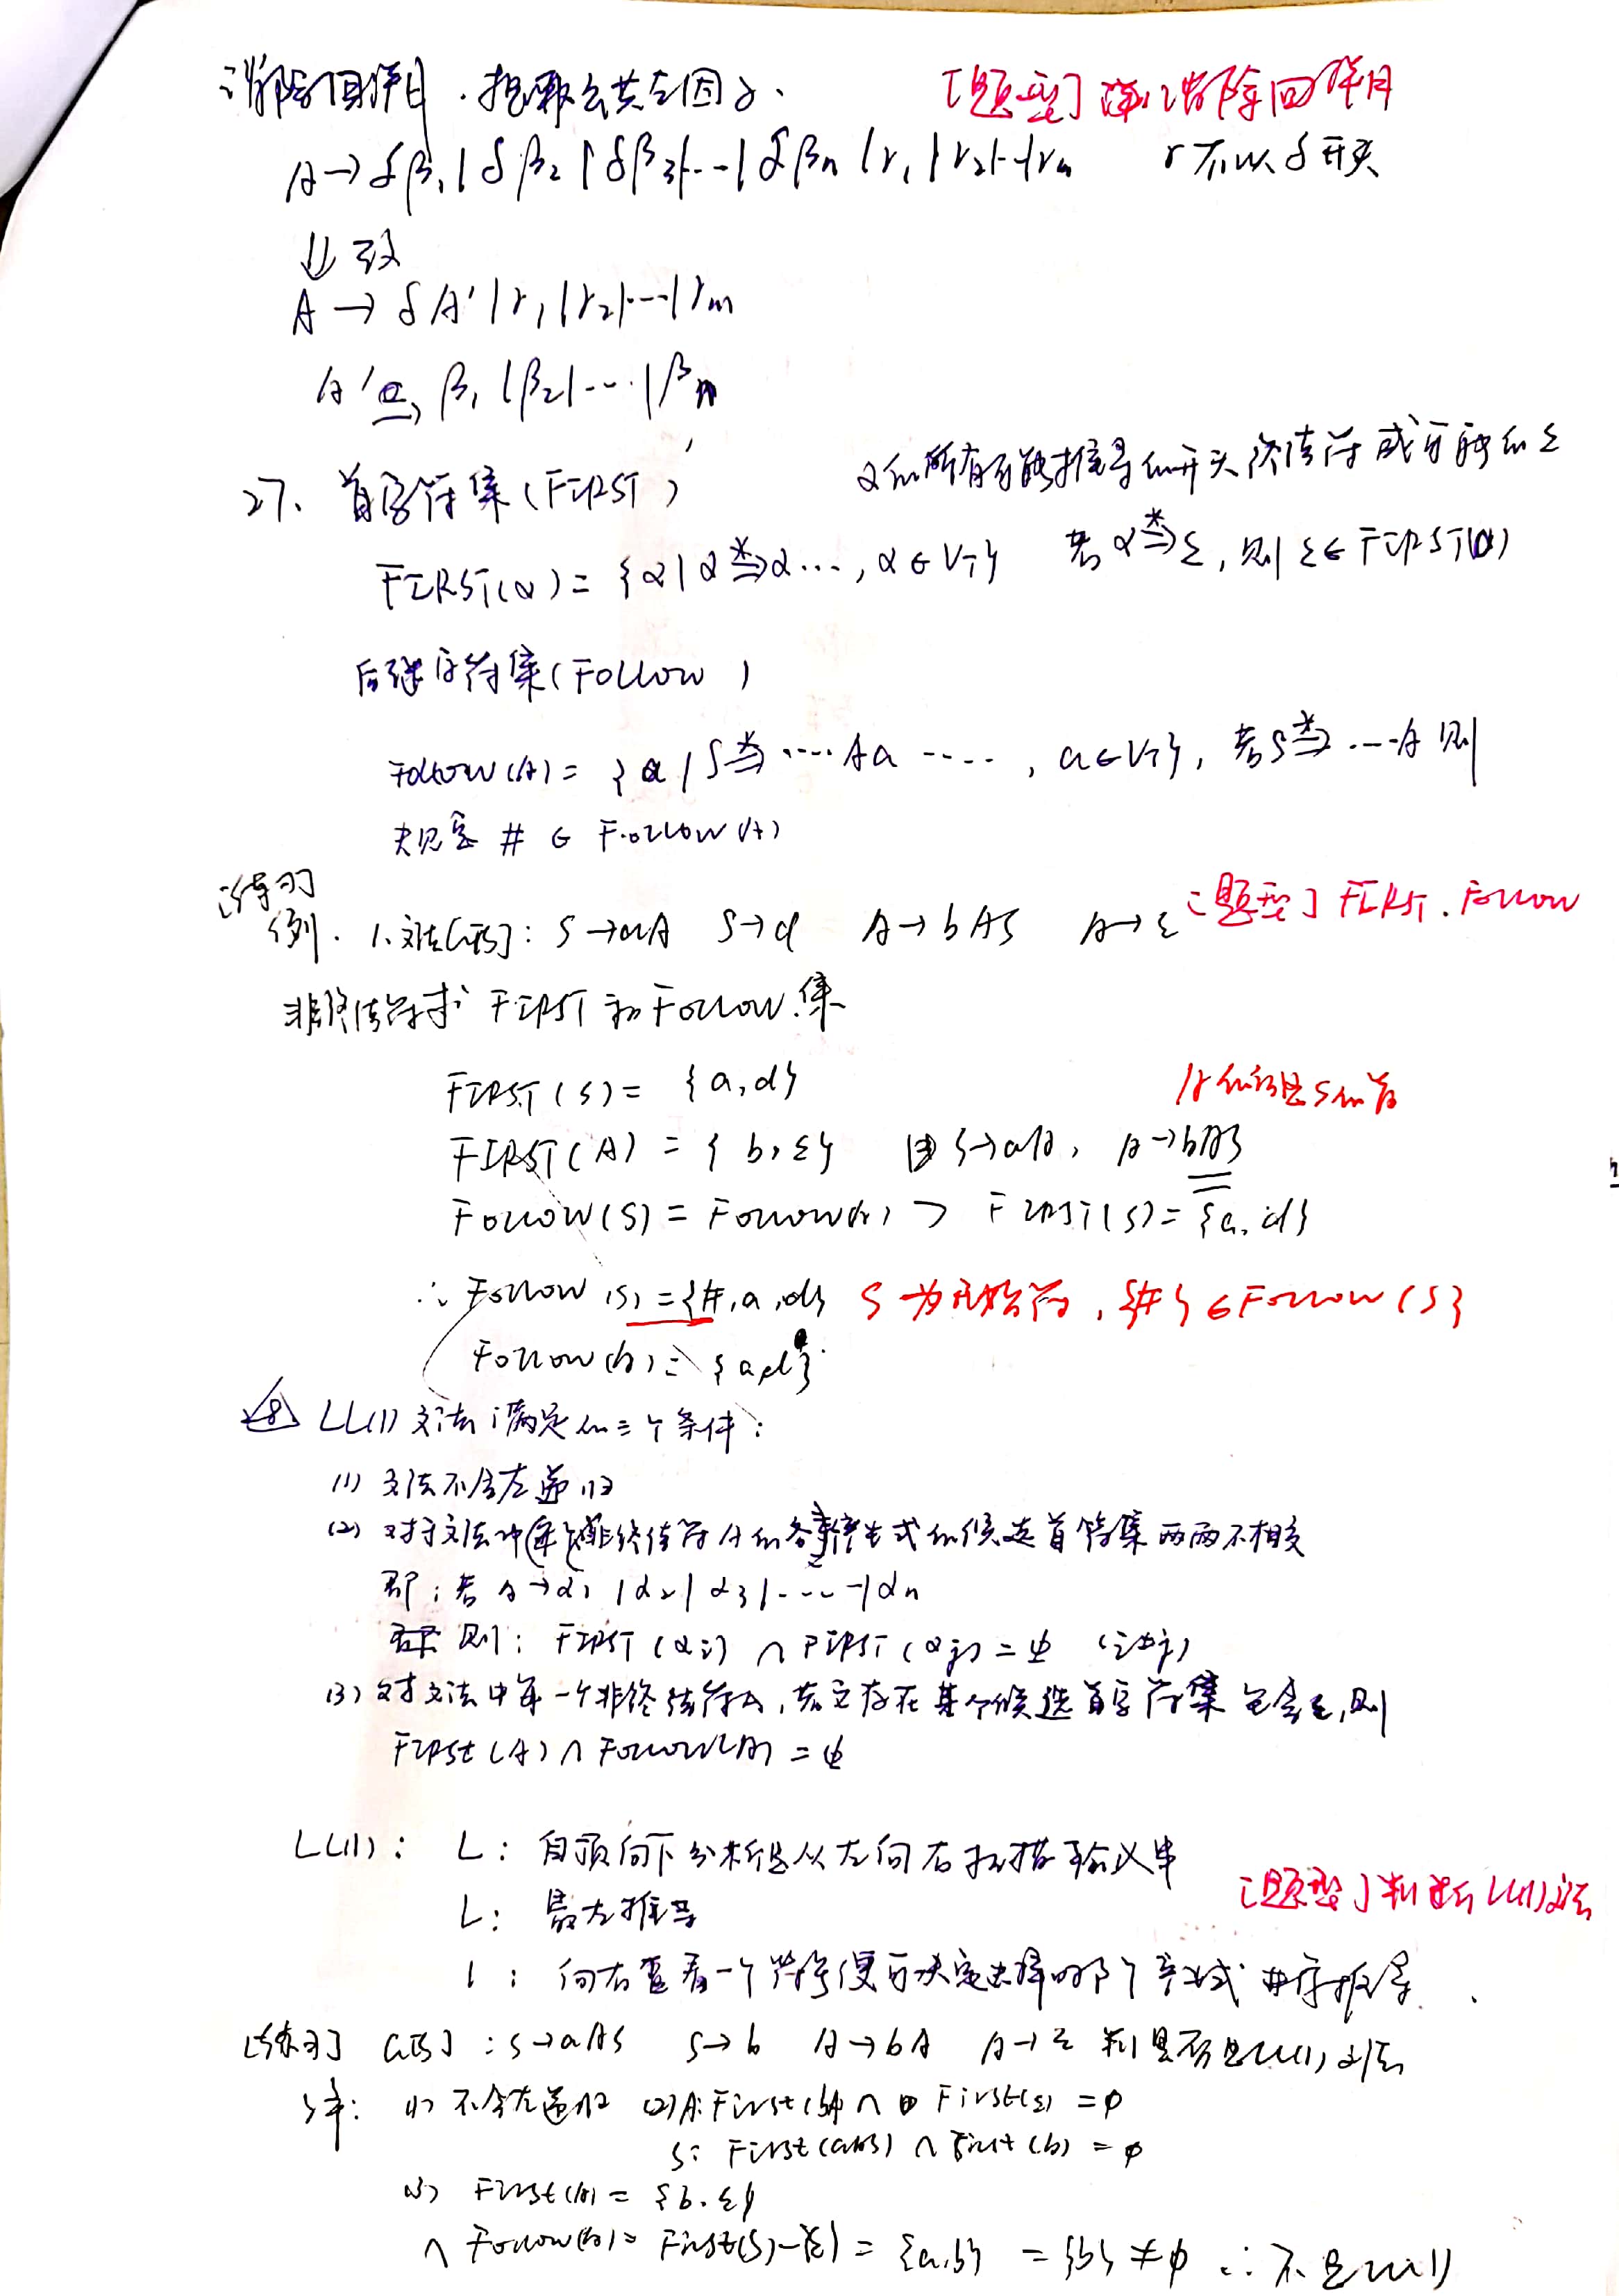 消除回溯 . 提取公共左因子. [题型] 消除回溯
A → δβ₁ | δβ₂ | δβ₃ | ... | δβn | r₁ | r₂ | ... | rm r不以δ开头
⇓ 改
A → δA' | r₁ | r₂ | ... | rm
A' → β₁ | β₂ | ... | βn
α的所有可能推导的开头终结符或可能的ε
27. 首字符集 (FIRST)
FIRST(α) = {α | α ⇒* α..., α ∈ VT} 若 α ⇒* ε, 则 ε ∈ FIRST(α)
后继字符集 (Follow)
Follow(A) = {a | S ⇒* ....Aa ...., a ∈ VT}, 若S ⇒* ....A 则
规定 # ∈ Follow(A)
[练习] [题型] FIRST. Follow
例. 1. 文法G[S]: S → aA S → d A → bAS A → ε
非终结符求 FIRST 和 Follow 集
FIRST(S) = {a, d} A的后是S的首
FIRST(A) = {b, ε} 由 S → aA, A → bAS
Follow(S) = Follow(A) ⊃ FIRST(S) = {a, d}
∴ Follow(S) = {#, a, d} S为开始符, {#} ∈ Follow(S)
Follow(A) = {a, d}
28 LL(1) 文法满足的三个条件:
(1) 文法不含左递归
(2) 对于文法中每个非终结符A的各产生式的候选首符集两两不相交
即: 若 A → α₁ | α₂ | α₃ | ... | αn
则: FIRST(αi) ∩ FIRST(αj) = φ (i≠j)
(3) 对文法中每一个非终结符A, 若它存在某个候选首字符集包含ε, 则
First(A) ∩ Follow(A) = φ
LL(1): L: 自顶向下分析是从左向右扫描输入串
L: 最左推导 [题型] 判断LL(1)文法
1: 向右查看一个符号便可决定选择哪个产生式进行推导.
[练习] G[S]: S → aAS S → b A → bA A → ε 判是否是LL(1)文法
解: (1) 不含左递归 (2) A: First(bA) ∩ First(ε) = φ
S: First(aAS) ∩ First(b) = φ
(3) First(A) = {b, ε}
∩ Follow(A) = First(S) - {ε} = {a, b} = {b} ≠ φ ∴ 不是LL(1)